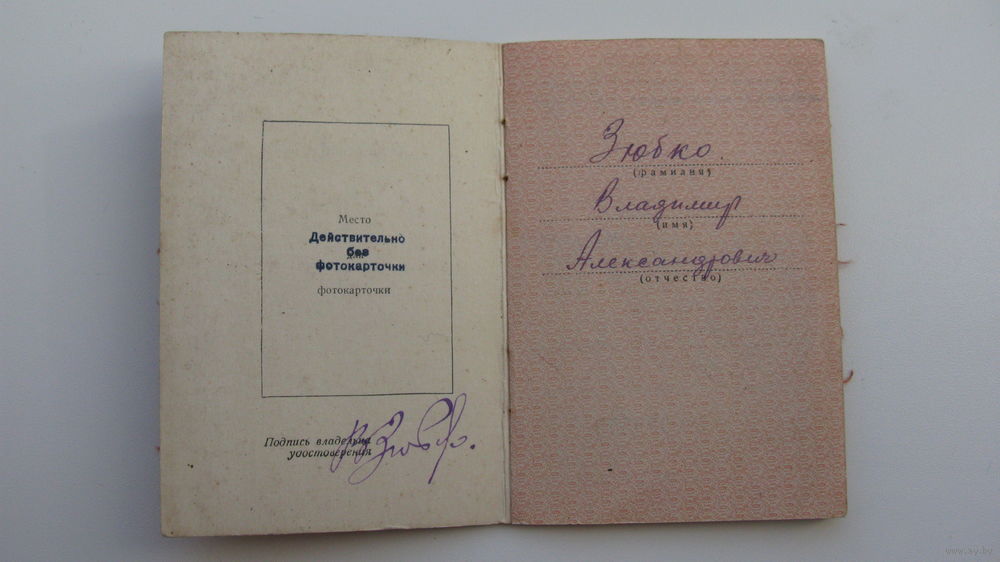 Место
Действительно
без
для
фотокарточки
фотокарточки
Подпись владельца
удостоверения
В Зюбко.
Зюбко
(фамилия)
Владимир
(имя)
Александрович
(отчество)
www.ay.by